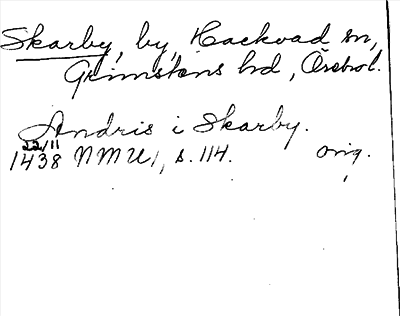 Skarby, by, Hackvad sn,
Grimstens hd, Örebrol.
Andris i Skarby.
22/11
1438 NMU1, s. 114. orig.